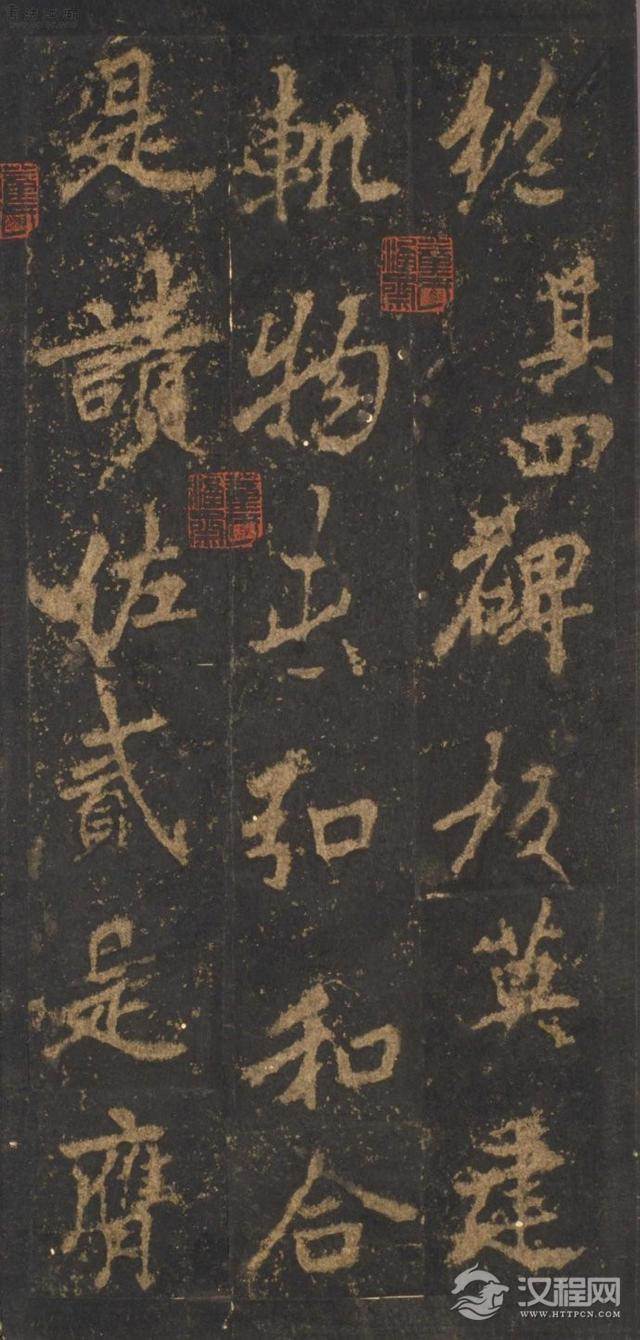 其四碑板英建
軌物弘和合
是讚佐貳是膺
汉程网
WWW.HTTPCN.COM